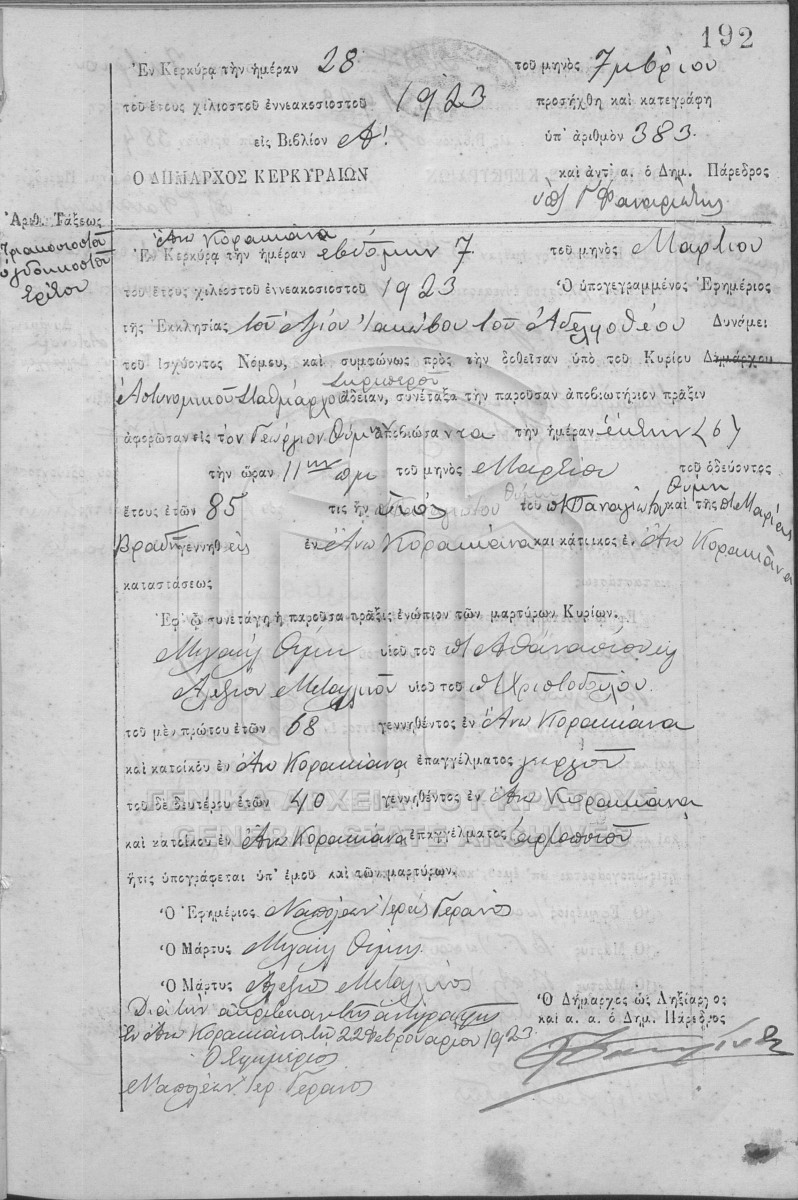 192
Ἐν Κερκύρᾳ τὴν ἡμέραν 28 τοῦ μηνὸς 7μβρίου
τοῦ ἔτους χιλιοστοῦ ἐννεακοσιοστοῦ 1923 προσήχθη καὶ κατεγράφη
εἰς Βιβλίον Α! ὑπ' ἀριθμὸν 383.
Ο ΔΗΜΑΡΧΟΣ ΚΕΡΚΥΡΑΙΩΝ καὶ ἀντ' α. ὁ Δημ. Πάρεδρος
Ἀριθ. Τάξεως
τριακοσιοστοῦ
ὀγδοηκοστοῦ
τρίτου
Ἄνω Κορακιάνα
Ἐν Κερκύρᾳ τὴν ἡμέραν ἑβδόμην 7 τοῦ μηνὸς Μαρτίου
τοῦ ἔτους χιλιοστοῦ ἐννεακοσιοστοῦ 1923 Ὁ ὑπογεγραμμένος Ἐφημέριος
τῆς Ἐκκλησίας τοῦ Ἁγίου Ἰακώβου τοῦ Ἀδελφοθέου Δυνάμει
τοῦ Ἰσχύοντος Νόμου, καὶ συμφώνως πρὸς τὴν δοθεῖσαν ὑπὸ τοῦ Κυρίου Δημάρχου
Σκριπεροῦ
Ἀστυνομικοῦ Σταθμάρχου ἄδειαν, συνέταξα τὴν παροῦσαν ἀποβιωτήριον πρᾶξιν
ἀφορῶσαν εἰς τὸν Γεώργιον Θύμην ἀποβιώσαντα τὴν ἡμέραν ἕκτην (6)
τὴν ὥραν 11ην πμ τοῦ μηνὸς Μαρτίου τοῦ ὁδεύοντος
Θύμη
ἔτους ἐτῶν 85 τις ἦν υἱὸς τοῦ πΠαναγιώτου καὶ τῆς πΜαρίας
Βραδῆ γεννηθεὶς ἐν Ἄνω Κορακιάνα καὶ κάτοικος ἐν Ἄνω Κορακιάνα
καταστάσεως
Ἐφ' ᾧ συνετάγη ἡ παροῦσα πρᾶξις ἐνώπιον τῶν μαρτύρων Κυρίων.
Μιχαὴλ Θύμη υἱοῦ τοῦ πΑθανασίου
Ἀλεξίου Μεταλληνοῦ υἱοῦ τοῦ πΧριστοδούλου
τοῦ μὲν πρώτου ἐτῶν 68 γεννηθέντος ἐν Ἄνω Κορακιάνα
καὶ κατοίκου ἐν Ἄνω Κορακιάνα ἐπαγγέλματος γεωργοῦ
τοῦ δὲ δευτέρου ἐτῶν 40 γεννηθέντος ἐν Ἄνω Κορακιάνα
καὶ κατοίκου ἐν Ἄνω Κορακιάνα ἐπαγγέλματος ἀρτοποιοῦ
ἥτις ὑπογράφεται ὑπ' ἐμοῦ καὶ τῶν μαρτύρων.
Ὁ Ἐφημέριος Ναπολέων Ἱερεὺς Γερανὸς
Ὁ Μάρτυς Μιχαὴλ Θύμης
Ὁ Μάρτυς Ἀλέξιος Μεταλληνὸς
Διὰ τὴν ἀκρίβειαν τῆς ἀντιγραφῆς
Ἐν Ἄνω Κορακιάνα τῇ 22 Φεβρουαρίου 1923
Ὁ Ἐφημέριος
Ναπολέων Ἱερ. Γερανὸς
Ὁ Δήμαρχος ὡς Ληξίαρχος
καὶ α. α. ὁ Δημ. Πάρεδρος
ΓΕΝΙΚΑ ΑΡΧΕΙΑ ΤΟΥ ΚΡΑΤΟΥΣ
GENERAL STATE ARCHIVES